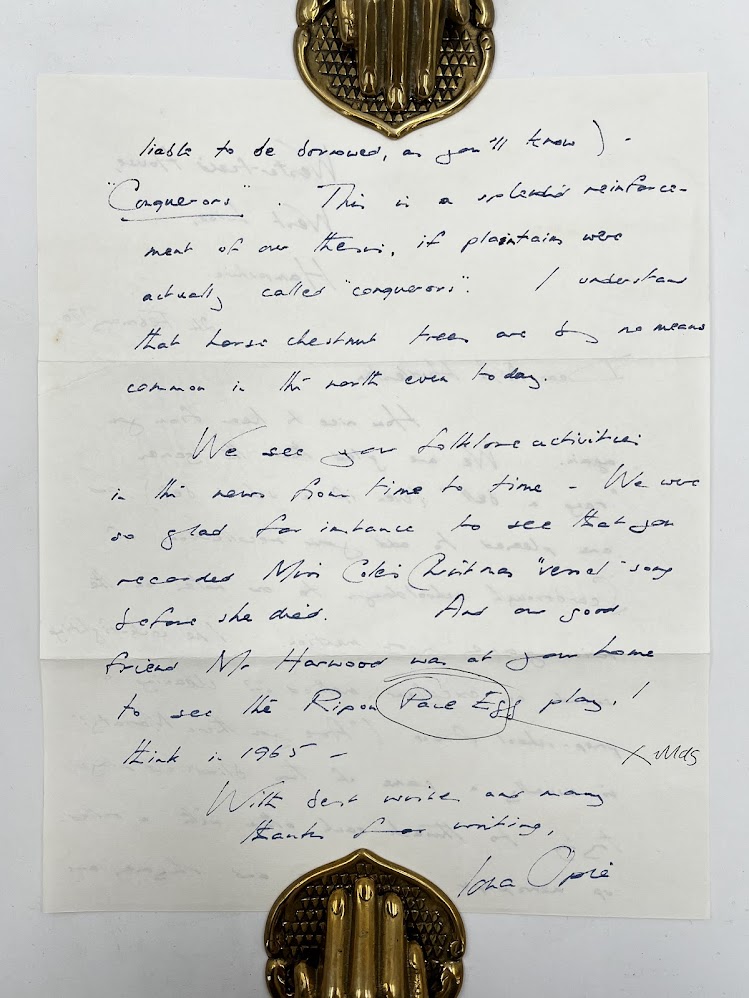 liable to be borrowed, as you'll know) -
"Conquerors". This is a splendid reinforce-
ment of our thesis, if plaintains were
actually called "conquerors". I understand
that horse chestnut trees are by no means
common in the north even today.
We see your folklore activities
in the news from time to time - We were
so glad for instance to see that you
recorded Miss Coles Christmas "vessel" song
before she died. And our good
friend Mr Harwood was at your home
to see the Ripon Pace Egg play, I
think in 1965 -
X Mas
With best wishes and many
thanks for writing,
Iona Opie